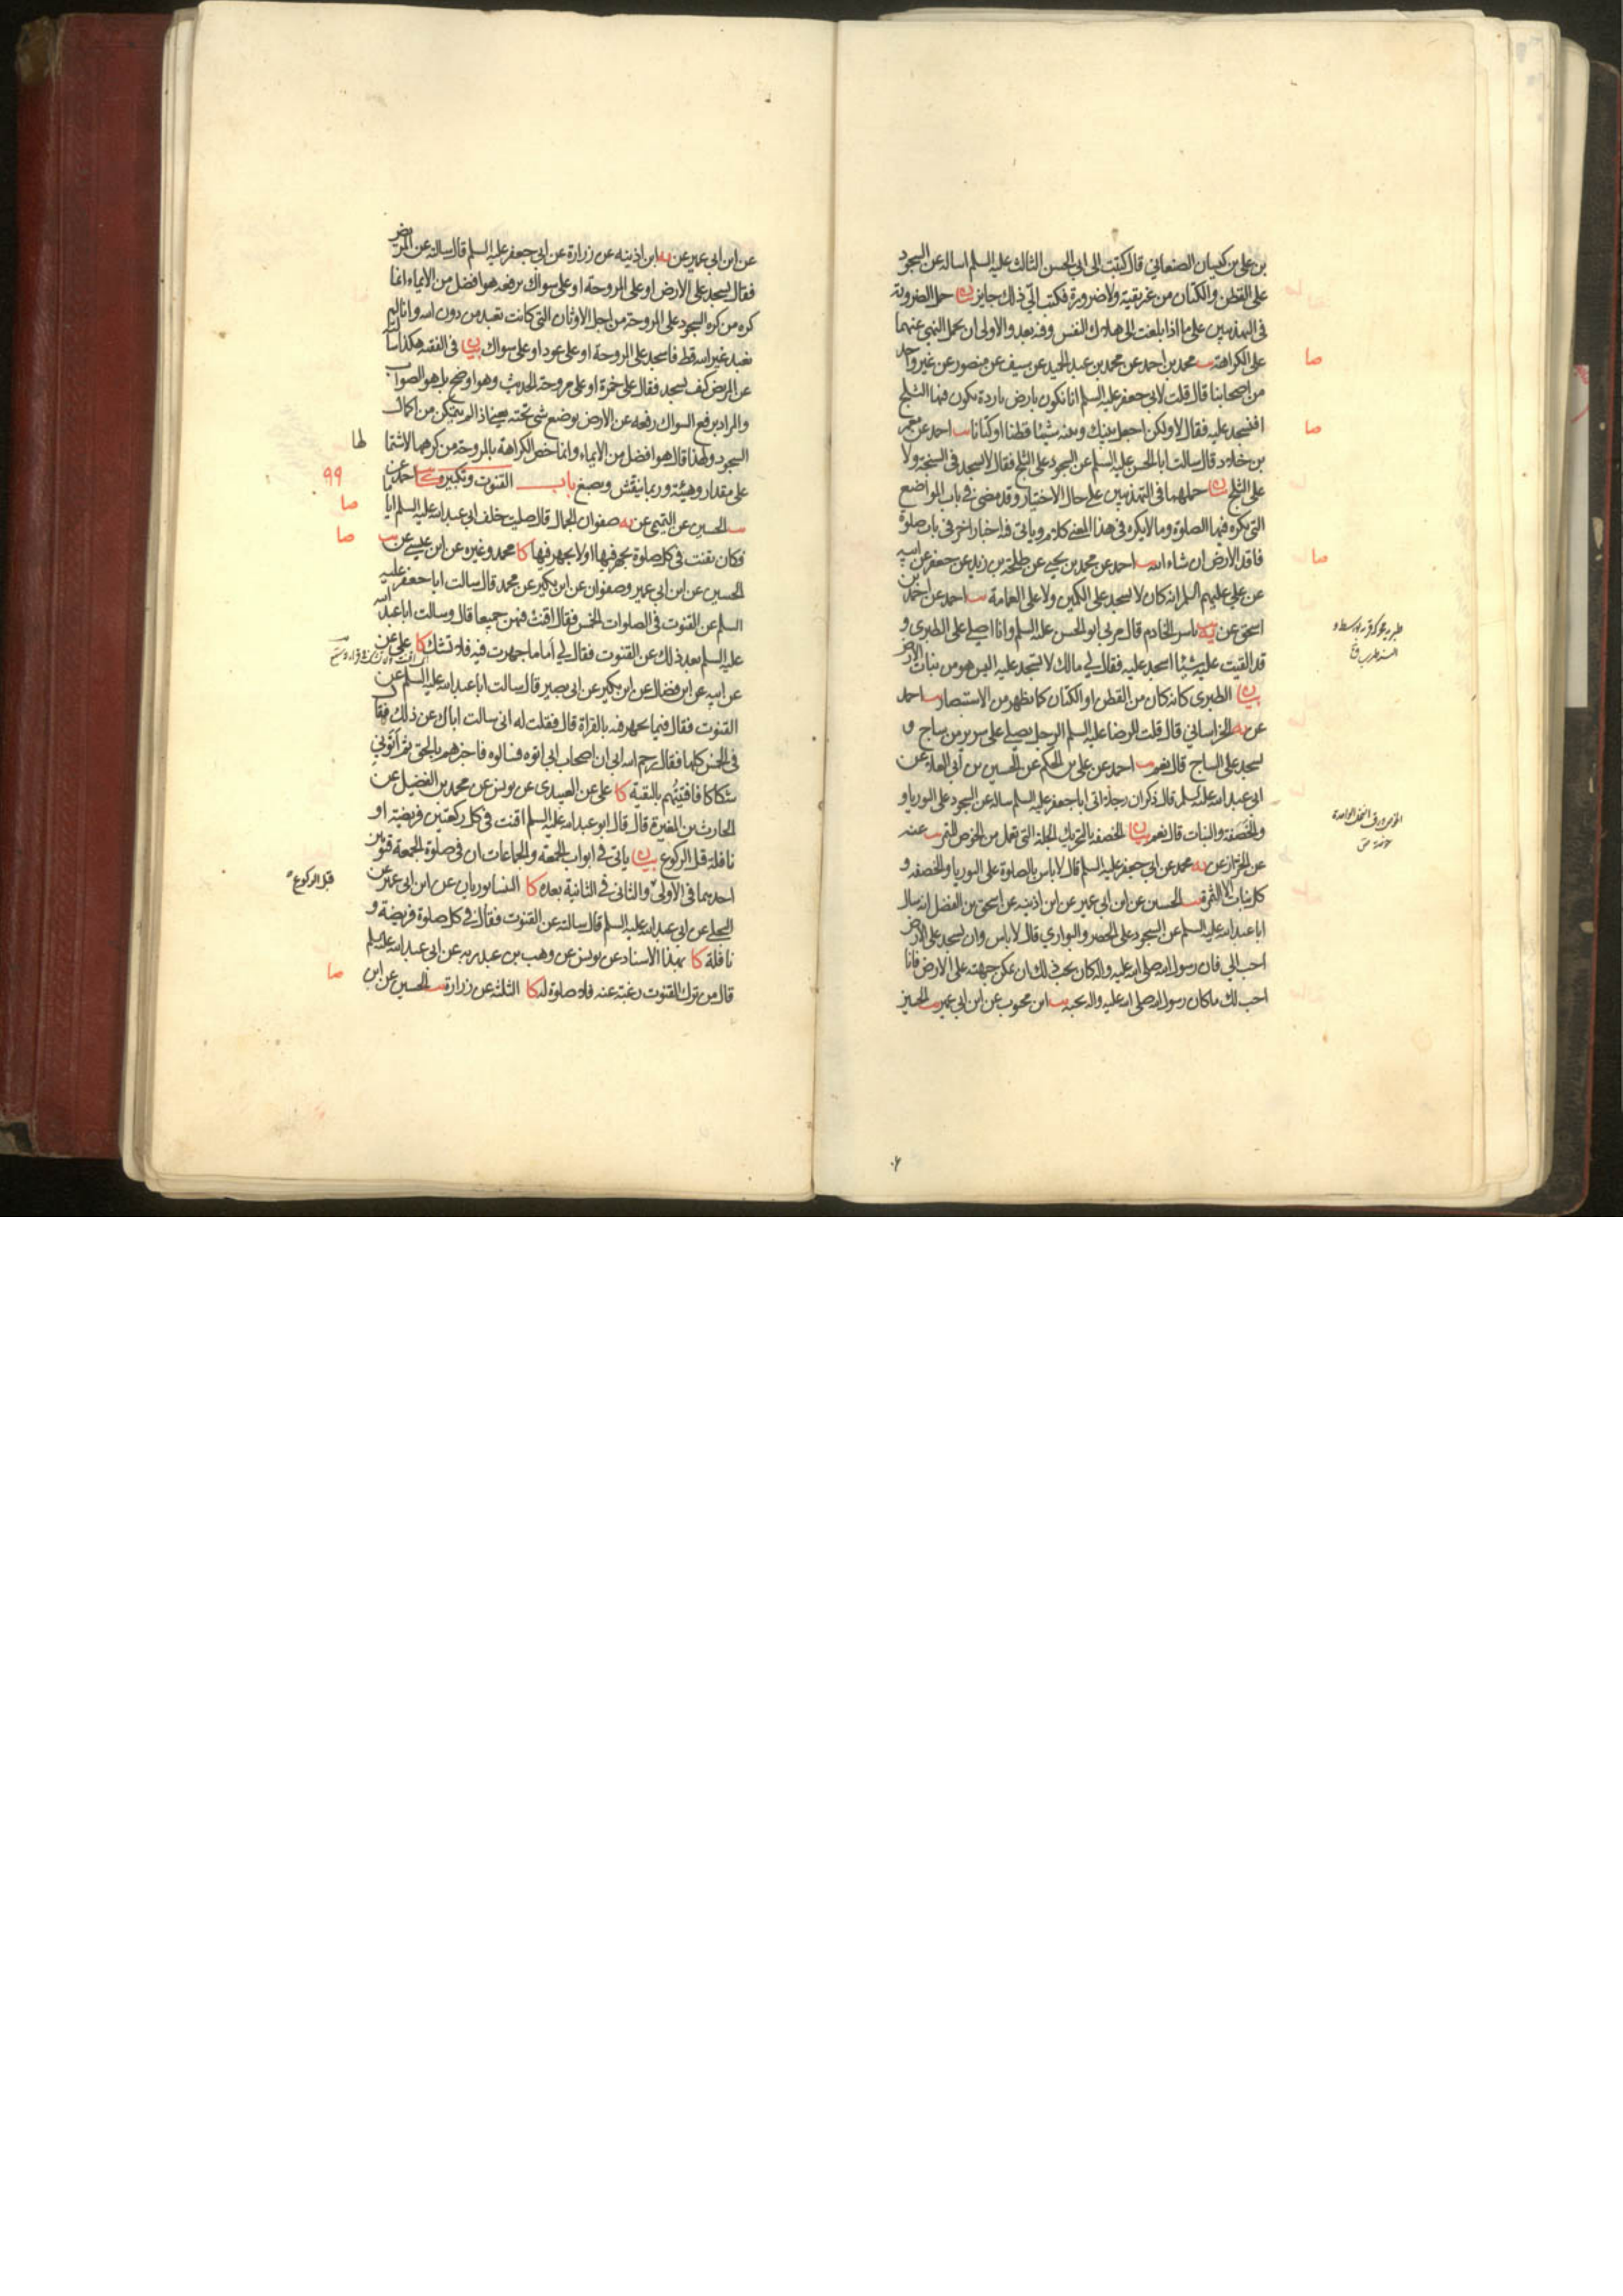 بن علي بن كيسان الصنعاني قال كتبت الى ابي الحسن الثالث عليه السلم اساله عن السجود
على القطن والكتان من غير تقية ولا ضرورة فكتب الي ذلك جايز بيان حمل الضرورة
في التهذيبين على ما اذا بلغت الى هلاك النفس وفيه بعد والاولى ان يحمل النهي عنهما
على الكراهة يب محمد بن احمد عن محمد بن عبد الحميد عن سيف عن منصور عن غير واحد
من اصحابنا قال قلت لابي جعفر عليه السلم انا نكون بارض باردة يكون فيها الثلج
افنسجد عليه فقال لا ولكن اجعل بينك وبينه شيئا قطنا او كتانا يب احمد عن معمر
بن خلاد قال سالت ابا الحسن عليه السلم عن السجود على الثلج فقال لا تسجد في السبخة ولا
على الثلج بيان حملهما في التهذيبين على حال الاختيار وقد مضى في باب المواضع
التي يكره فيها الصلوة وما لا يكره في هذا المعنى كلام وياتي فيه اخبار اخر في باب صلوة
فاقد الارض ان شاء الله يب احمد عن محمد بن يحيى عن طلحة بن زيد عن جعفر عن ابيه
عن علي عليهم السلم انه كان لا يسجد على الكمين ولا على العمامة يب احمد عن احمد بن
اسحق عن ياسر الخادم قال مر بي ابو الحسن عليه السلم وانا اصلي على الطبري و
قد القيت عليه شيئا اسجد عليه فقال لي مالك لا تسجد عليه اليس هو من نبات الارض
بيان الطبري كانه كان من القطن او الكتان كما يظهر من الاستبصار يب احمد
عن الخراساني قال قلت للرضا عليه السلم الرجل يصلي على سرير من ساج و
يسجد على الساج قال نعم يب احمد عن علي بن الحكم عن الحسين بن ابي العلاء عن
ابي عبد الله عليه السلم قال ذكر ان رجلا اتى ابا جعفر عليه السلم ساله عن السجود على البوريا و
والخصفة والنبات قال نعم بيان الخصفة بالتحريك الجلة التي تعمل من الخوص للتمر يب عنه
عن محمد عن ابي جعفر عليه السلم قال لا باس بالصلوة على البوريا والخصفة و
كل نبات الا الثمرة يب الحسين عن ابن ابي عمير عن ابن اذينه عن اسحق بن الفضل انه سال
ابا عبد الله عليه السلم عن السجود على الحصر والبواري قال لا باس وان يسجد على الارض
احب الي فان رسول الله صلى الله عليه واله كان يحب ذلك ان يمكن جبهته على الارض فانا
احب لك ما كان رسول الله صلى الله عليه واله يحبه يب ابن محبوب عن ابن ابي عمير يب الحسين
صا
صا
صا
عن ابن ابي عمير عن ابن اذينه عن زرارة عن ابي جعفر عليه السلم قال سالته عن المريض
فقال يسجد على الارض او على المروحة او على سواك يرفعه هو افضل من الايماء انما
كره من كره السجود على المروحة من اجل الاوثان التي كانت تعبد من دون الله وانا لم
نعبد غير الله قط فاسجد على المروحة او على عود او على سواك بيان في الفقيه هكذا سال
عن المريض كيف يسجد فقال على خمرة او على مروحة الحديث وهو اوضح بل هو الصواب
والمراد برفع السواك رفعه عن الارض بوضع شي تحته يعني اذا لم يتمكن من اكمال
السجود ولهذا قال هو افضل من الايماء وانما خص الكراهة بالمروحة من كرهها لاشتما
لها
على مقدار وهيئة وربما ينقش ويصبغ باب القنوت وتكبيره كا احمد عن
٩٩
يب الحسين عن التميمي عن صفوان الجمال قال صليت خلف ابي عبد الله عليه السلم اياما
صا
فكان يقنت في كل صلوة يجهر فيها او لا يجهر فيها كا محمد وغيره عن ابن عيسى عن يب
صا
الحسين عن ابن ابي عمير وصفوان عن ابن بكير عن محمد قال سالت ابا جعفر عليه
السلم عن القنوت في الصلوات الخمس فقال اقنت فيهن جميعا قال وسالت ابا عبد الله
عليه السلم بعد ذلك عن القنوت فقال لي اما ما جهرت فيه فلا تشك كا علي عن
عن ابيه عن ابن فضال عن ابن بكير عن ابي بصير قال سالت ابا عبد الله عليه السلم عن
القنوت فقال فيما يجهر فيه بالقراة قال فقلت له اني سالت اباك عن ذلك فقال
في الخمس كلها فقال رحم الله ابي ان اصحاب ابي اتوه فسالوه فاخبرهم بالحق ثم اتوني
شكاكا فافتيتهم بالتقية كا علي عن العبيدي عن يونس عن محمد بن الفضيل عن
الحارث بن المغيرة قال قال ابو عبد الله عليه السلم اقنت في كل ركعتين فريضة او
نافلة قبل الركوع بيان ياتي في ابواب الجمعة والجماعات ان في صلوة الجمعة قنوتين
احديهما في الاولى والثاني في الثانية بعده كا النيسابوريان عن ابن ابي عمير عن
قبل الركوع
البجلي عن ابي عبد الله عليه السلم قال سالته عن القنوت فقال في كل صلوة فريضة و
نافلة كا بهذا الاسناد عن يونس عن وهب بن عبد ربه عن ابي عبد الله عليه السلم
قال من ترك القنوت رغبة عنه فلا صلوة له كا الثلثة عن زرارة يب الحسين عن ابن
صا